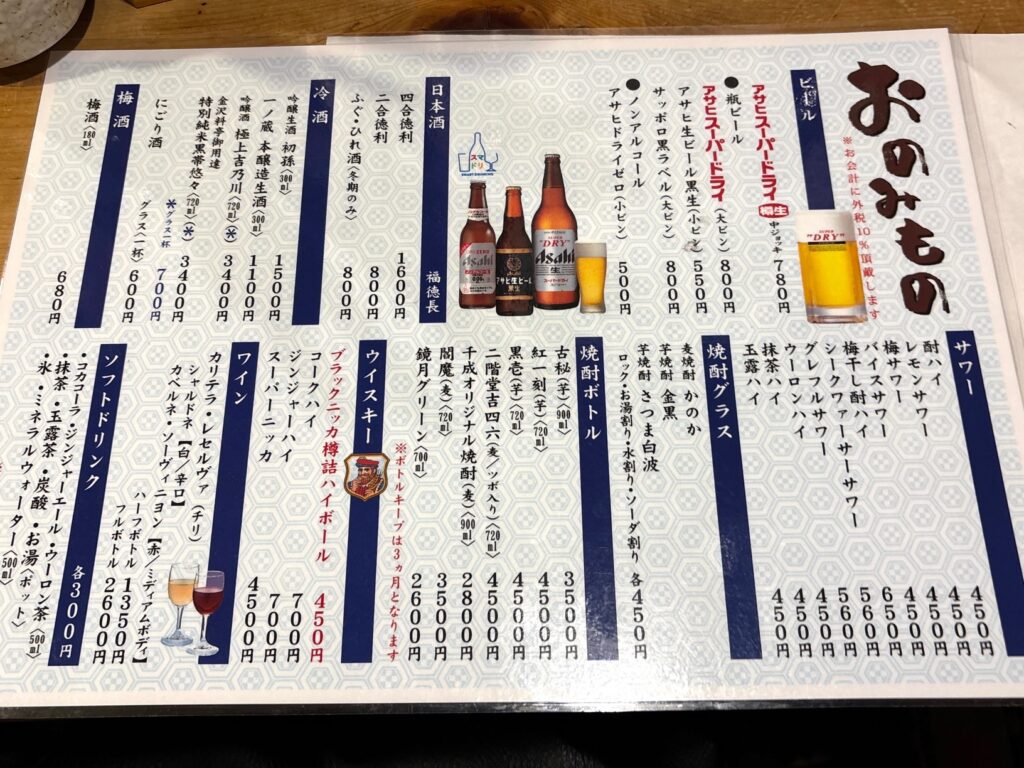 おのみもの
※お会計に外税10%頂戴します
ビール
アサヒスーパードライ 樽生 中ジョッキ 780円
●瓶ビール
アサヒスーパードライ(大ビン) 800円
アサヒ生ビール黒生(小ビン) 550円
サッポロ黒ラベル(大ビン) 800円
●ノンアルコール
アサヒドライゼロ(小ビン) 500円
SUPER "DRY"
Asahi
生
アサヒ生ビール
黒生
スマドリ
日本酒 福徳長
四合徳利 1600円
二合徳利 800円
ふぐ・ひれ酒(冬期のみ) 800円
冷酒
吟醸生酒 初孫〈300ml〉 1500円
一ノ蔵 本醸造生酒〈300ml〉 1100円
吟醸酒 極上吉乃川〈720ml〉(*) 3400円
金沢料亭御用達
特別純米黒帯悠々〈720ml〉(*) 3400円
*グラス一杯 700円
にごり酒 グラス一杯 600円
梅酒
梅酒〈180ml〉 680円
サワー
酎ハイ 450円
レモンサワー 450円
梅サワー 450円
バイスサワー 650円
梅干し酎ハイ 560円
シークワァーサーサワー 560円
グレフルサワー 450円
ウーロンハイ 450円
抹茶ハイ 450円
玉露ハイ 450円
焼酎グラス
麦焼酎 かのか
芋焼酎 金黒
芋焼酎 さつま白波
ロック・お湯割り・水割り・ソーダ割り 各450円
焼酎ボトル
古秘(芋)〈900ml〉 3500円
紅一刻(芋)〈720ml〉 4500円
黒壱(芋)〈720ml〉 4500円
二階堂吉四六(麦/ツボ入り)〈720ml〉 4500円
千成オリジナル焼酎(麦)〈900ml〉 2800円
閻魔(麦)〈720ml〉 3500円
鏡月グリーン〈700ml〉 2600円
※ボトルキープは3ヵ月となります
ウイスキー
ブラックニッカ樽詰ハイボール 450円
コークハイ 700円
ジンジャーハイ 700円
スーパーニッカ 4500円
ワイン
カリテラ・レセルヴァ(チリ)
シャルドネ【白/辛口】
カベルネ・ソーヴィニヨン【赤/ミディアムボディ】
ハーフボトル 1350円
フルボトル 2600円
ソフトドリンク 各300円
・コカコーラ・ジンジャーエール・ウーロン茶〈500ml〉
・抹茶・玉露茶・炭酸・お湯〈ポット〉
・氷・ミネラルウォーター〈500ml〉